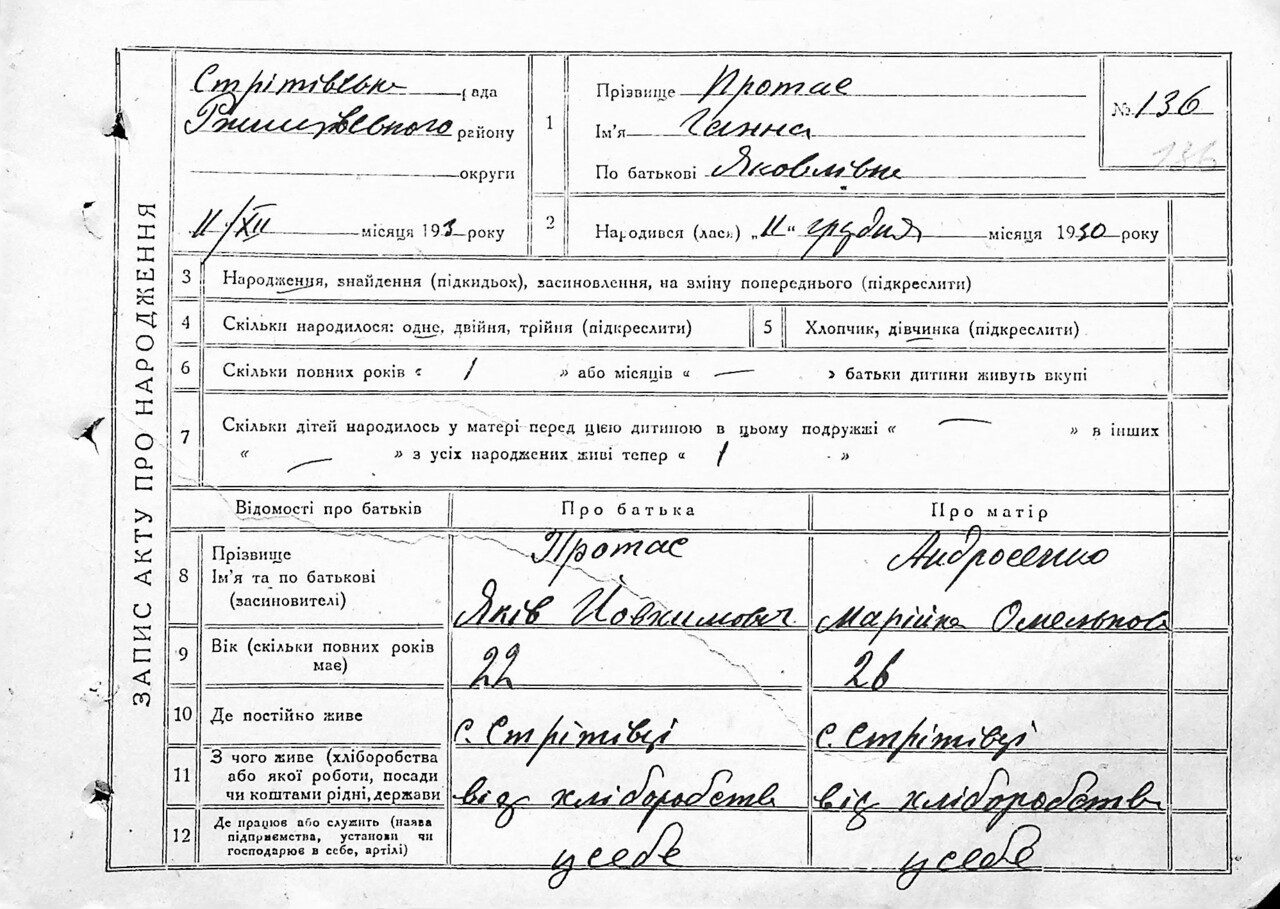 ЗАПИС АКТУ ПРО НАРОДЖЕННЯ
Стрітівська рада
Ржищевського району
округи
11/XII місяця 193 року
1
Прізвище Протас
Ім'я Ганна
По батькові Яковлівна
№ 136
136
2
Народився (лась) „11“ грудня місяця 1930 року
3 Народження, знайдення (підкидьок), засиновлення, на зміну попереднього (підкреслити)
4 Скільки народилося: одне, двійня, трійня (підкреслити)
5 Хлопчик, дівчинка (підкреслити)
6 Скільки повних років « 1 » або місяців « — » батьки дитини живуть вкупі
7 Скільки дітей народилось у матері перед цією дитиною в цьому подружжі « — » в інших
« — » з усіх народжених живі тепер « 1 »
Відомості про батьків Про батька Про матір
8 Прізвище
Ім'я та по батькові
(засиновителі)
Протас
Яків Йовхимович
Андросенко
Марійка Омелькова
9 Вік (скільки повних років
має)
22 26
10 Де постійко живе с. Стрітівці с. Стрітівці
11 З чого живе (хліборобства
або якої роботи, посади
чи коштами рідні, держави
від хліборобства від хліборобства
12 Де працює або служить (назва
підприємства, установи чи
господарює в себе, артілі)
у себе у себе